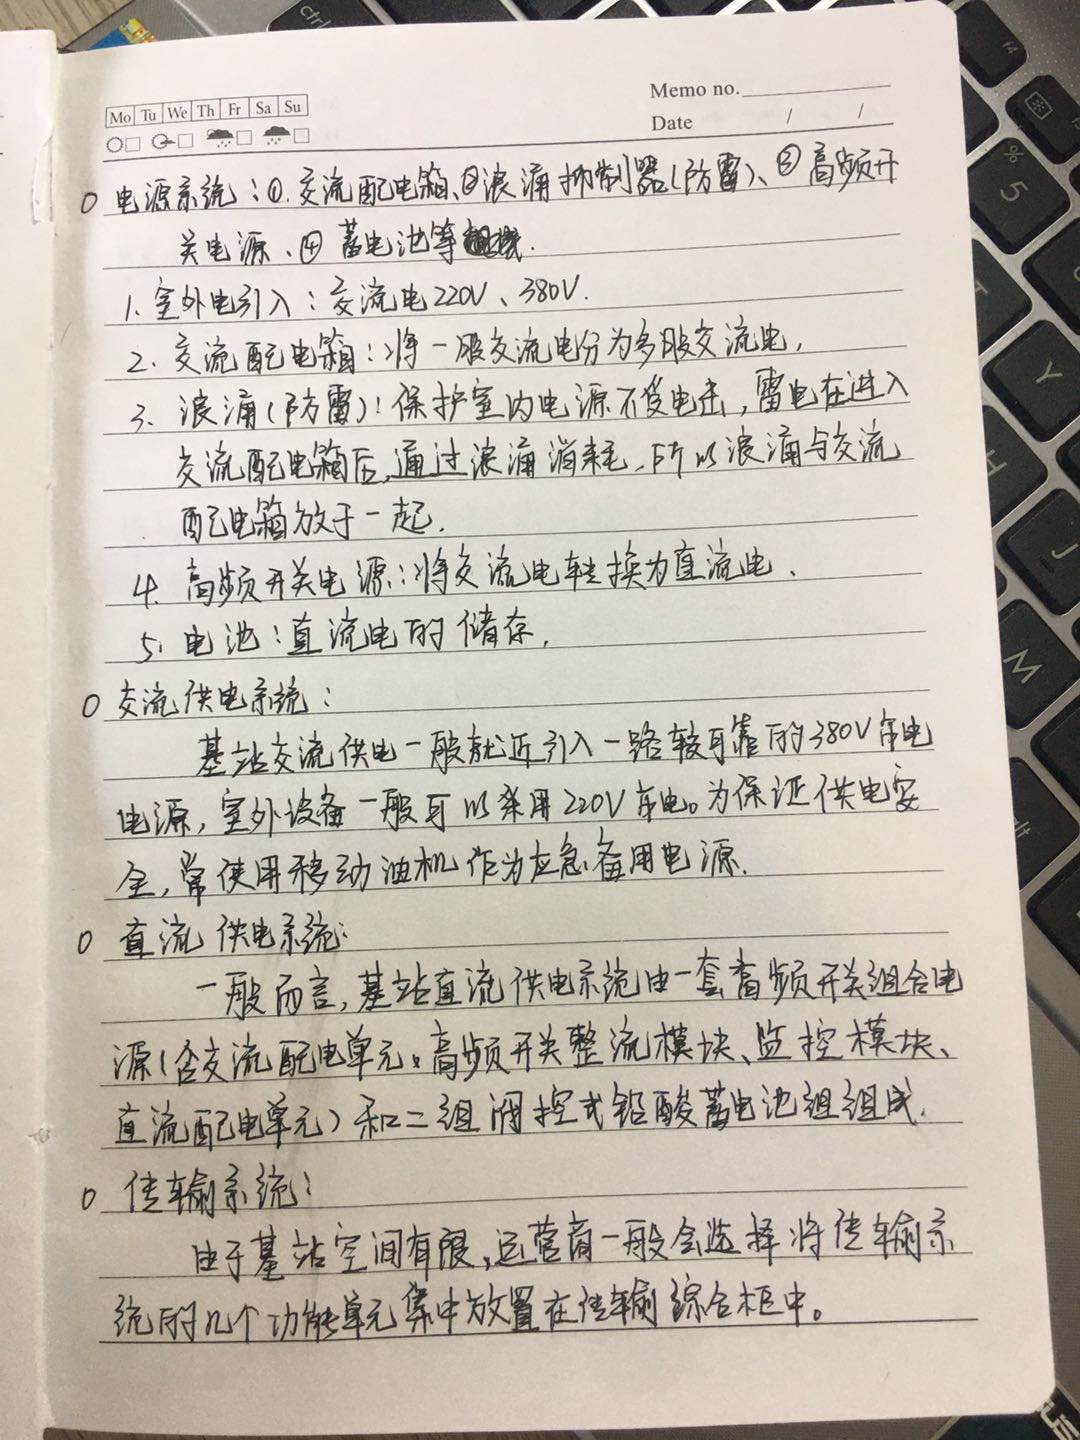 Mo Tu We Th Fr Sa Su
Memo no.
Date / /
O 电源系统：①.交流配电箱、②浪涌抑制器(防雷)、③高频开
关电源、④蓄电池等
1.室外电引入：交流电220V、380V.
2.交流配电箱：将一股交流电分为多股交流电.
3.浪涌(防雷)：保护室内电源不受电击，雷电在进入
交流配电箱后,通过浪涌消耗.所以浪涌与交流
配电箱放于一起.
4.高频开关电源：将交流电转换为直流电.
5.电池：直流电的储存.
O 交流供电系统：
基站交流供电一般就近引入一路较可靠的380V市电
电源，室外设备一般可以采用220V市电。为保证供电安
全，常使用移动油机作为应急备用电源.
O 直流供电系统：
一般而言，基站直流供电系统由一套高频开关组合电
源(含交流配电单元、高频开关整流模块、监控模块、
直流配电单元)和二组阀控式铅酸蓄电池组组成.
O 传输系统：
由于基站空间有限，运营商一般会选择将传输系
统的几个功能单元集中放置在传输综合柜中。
ctrl
f4
%
5
T
Y
H
J
M
alt